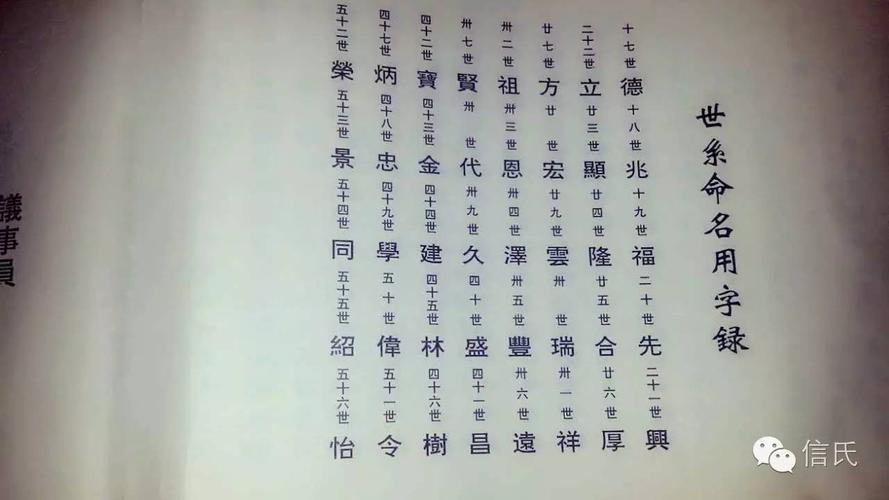 世系命名用字録
十七世 德 十八世 兆 十九世 福 二十世 先 二十一世 興
二十二世 立 廿三世 顯 廿四世 隆 廿五世 合 廿六世 厚
廿七世 方 廿 世 宏 廿九世 雲 卅 世 瑞 卅一世 祥
卅二世 祖 卅三世 恩 卅四世 澤 卅五世 豐 卅六世 遠
卅七世 賢 卅 世 代 卅九世 久 四十世 盛 四十一世 昌
四十二世 寶 四十三世 金 四十四世 建 四十五世 林 四十六世 樹
四十七世 炳 四十八世 忠 四十九世 學 五十世 偉 五十一世 令
五十二世 榮 五十三世 景 五十四世 同 五十五世 紹 五十六世 怡
議事員
信氏